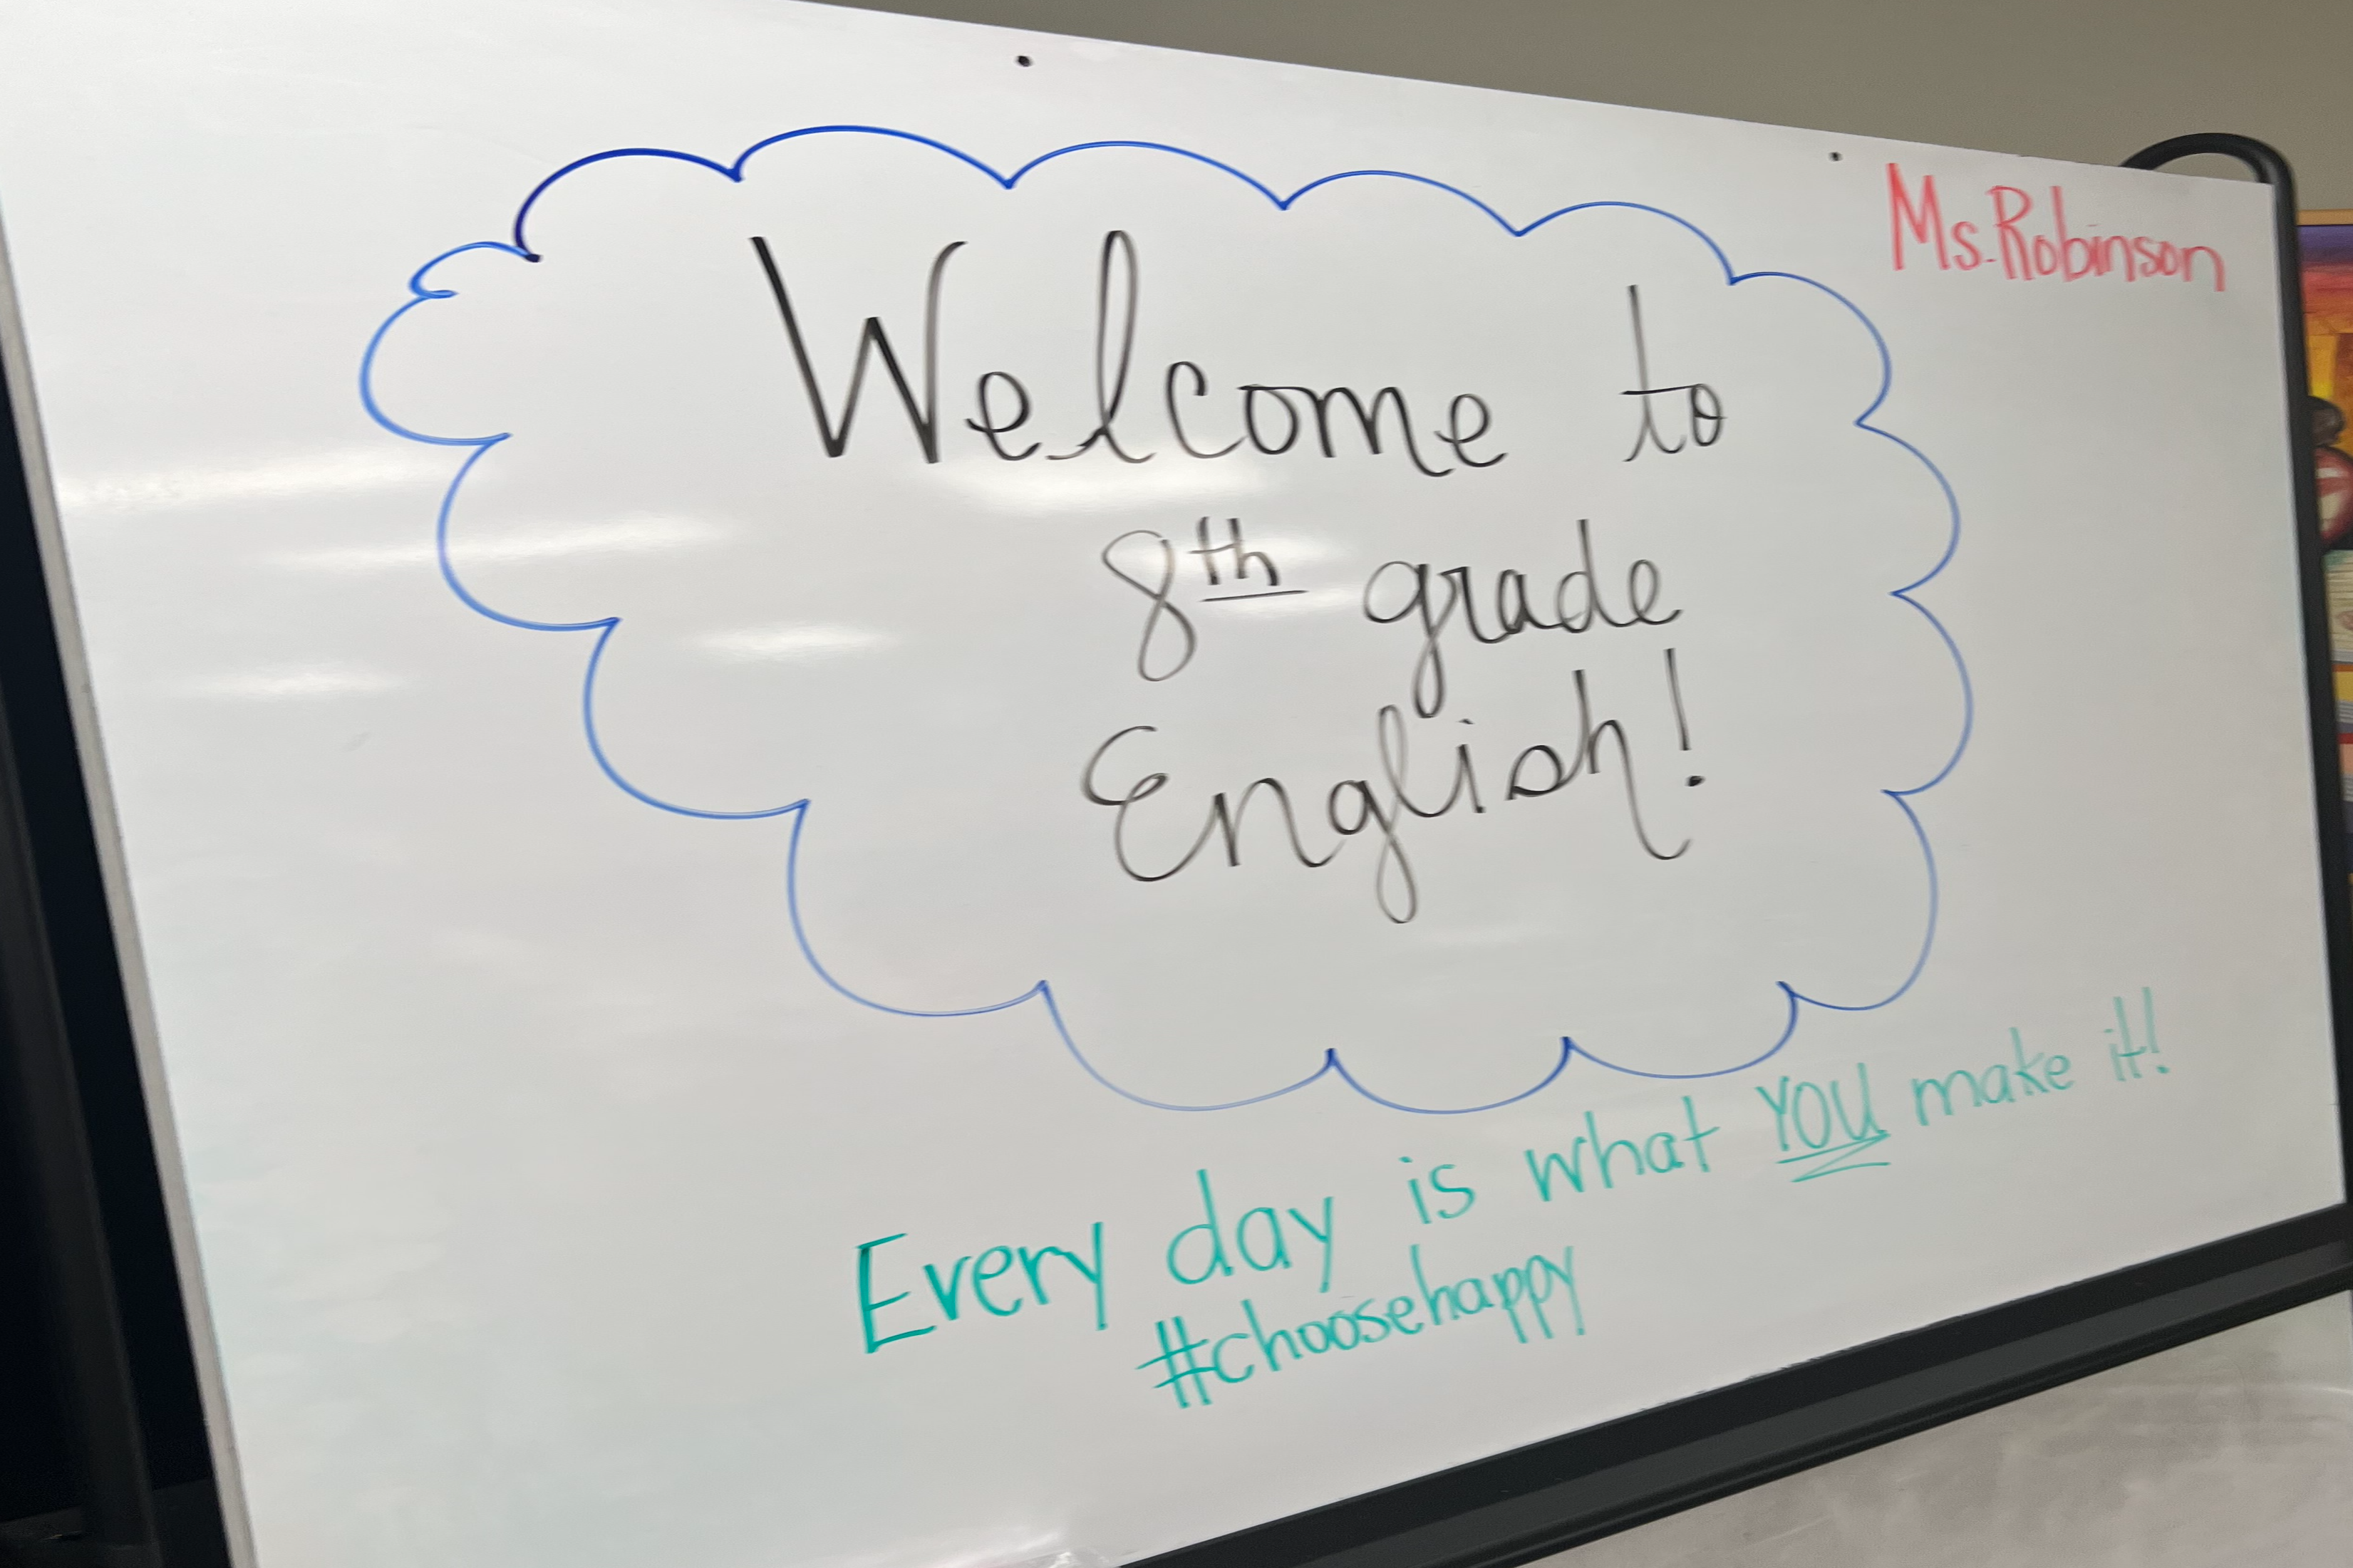 Ms. Robinson
Welcome to
8th grade
English!
Every day is what YOU make it!
#choosehappy